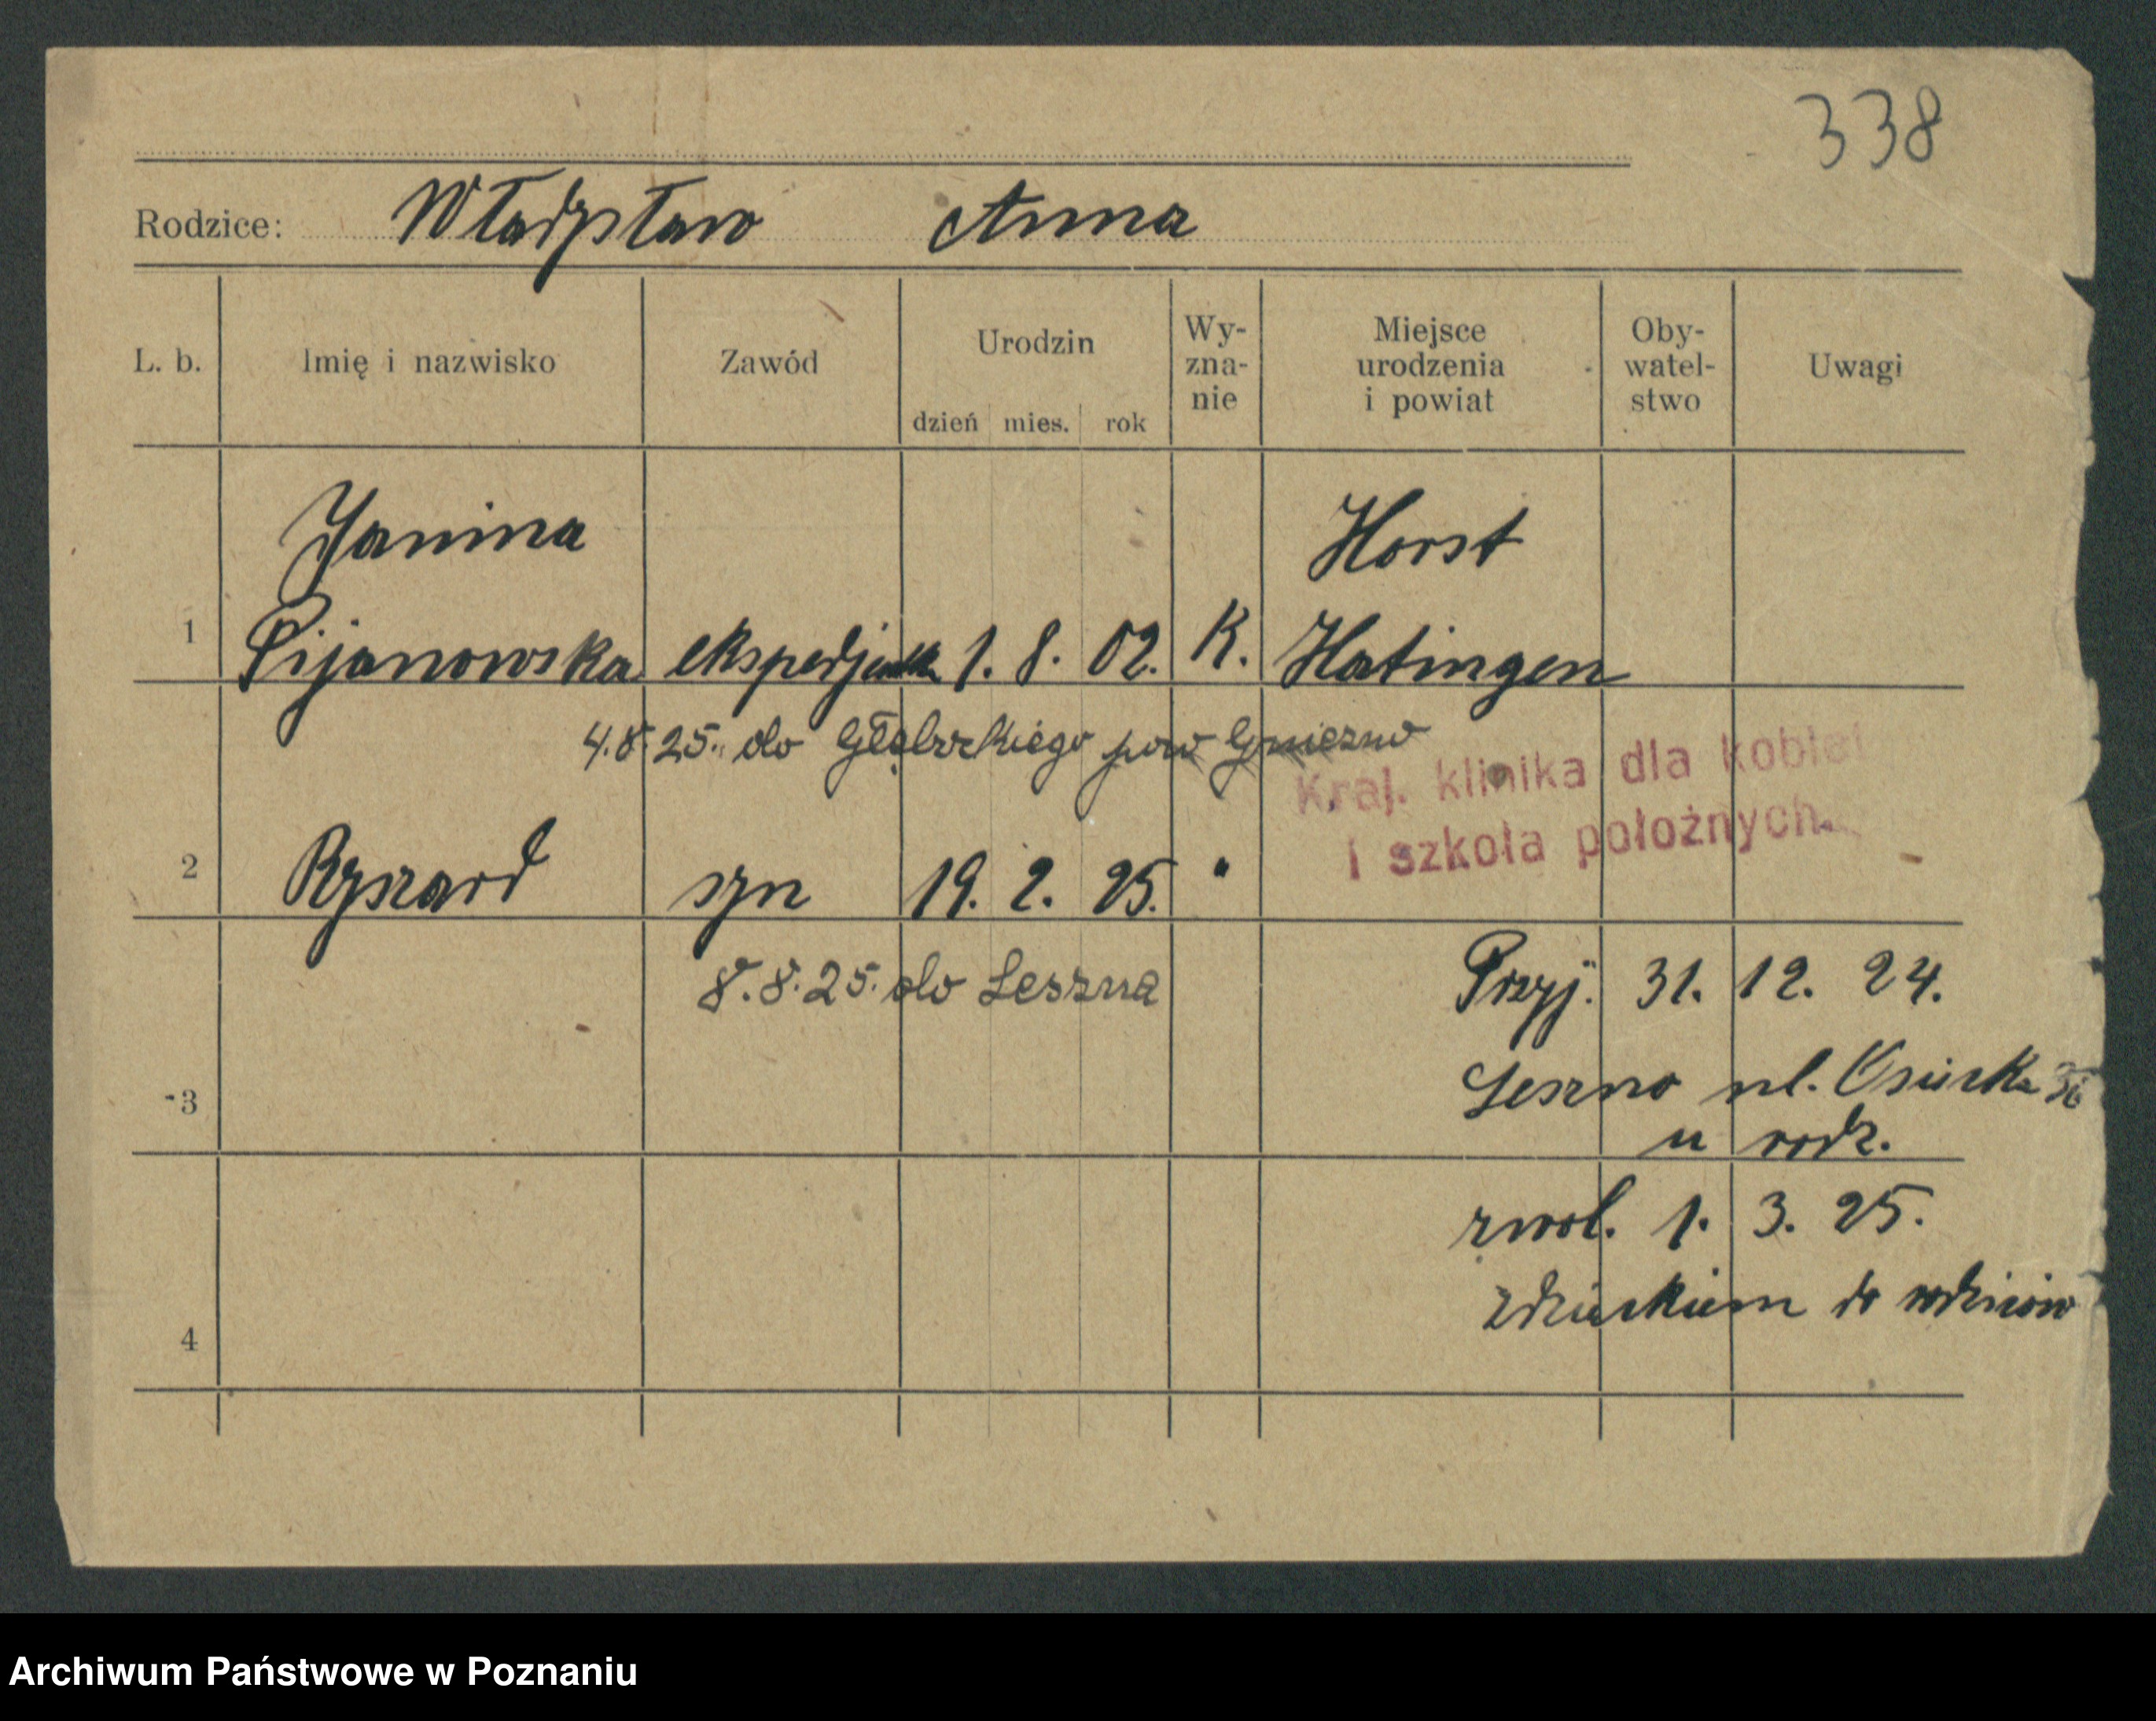 338
Rodzice: Władysław Anna
L. b. Imię i nazwisko Zawód Urodzin dzień mies. rok Wy-zna-nie Miejsce urodzenia i powiat Oby-watel-stwo Uwagi
Janina Horst
1 Pijanowska ekspedjentka 1. 8. 02. K. Hatingen
4.8.25. do pow Gniezno
Kraj. klinika dla kobiet
i szkoła położnych.
2 Ryszard syn 19. 2. 25. "
8.8.25. do Leszna
Przyj. 31. 12. 24.
3 Leszno ul. Osiecka
u rodz.
zwol. 1. 3. 25.
z dzieckiem do rodziców
4
Archiwum Państwowe w Poznaniu